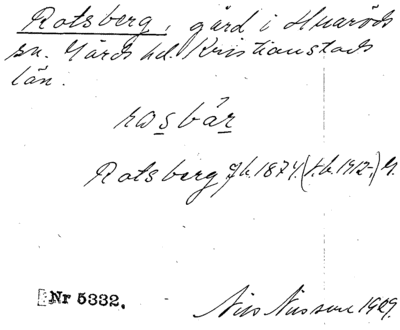 Rotsberg, gård i Huaröds
sn. Gärds hd. Kristianstads
län.
rasbár
Rotsberg Jb. 1874. (t.b. 1912.) G.
Nr 5332.
Nils Nilsson 1929.